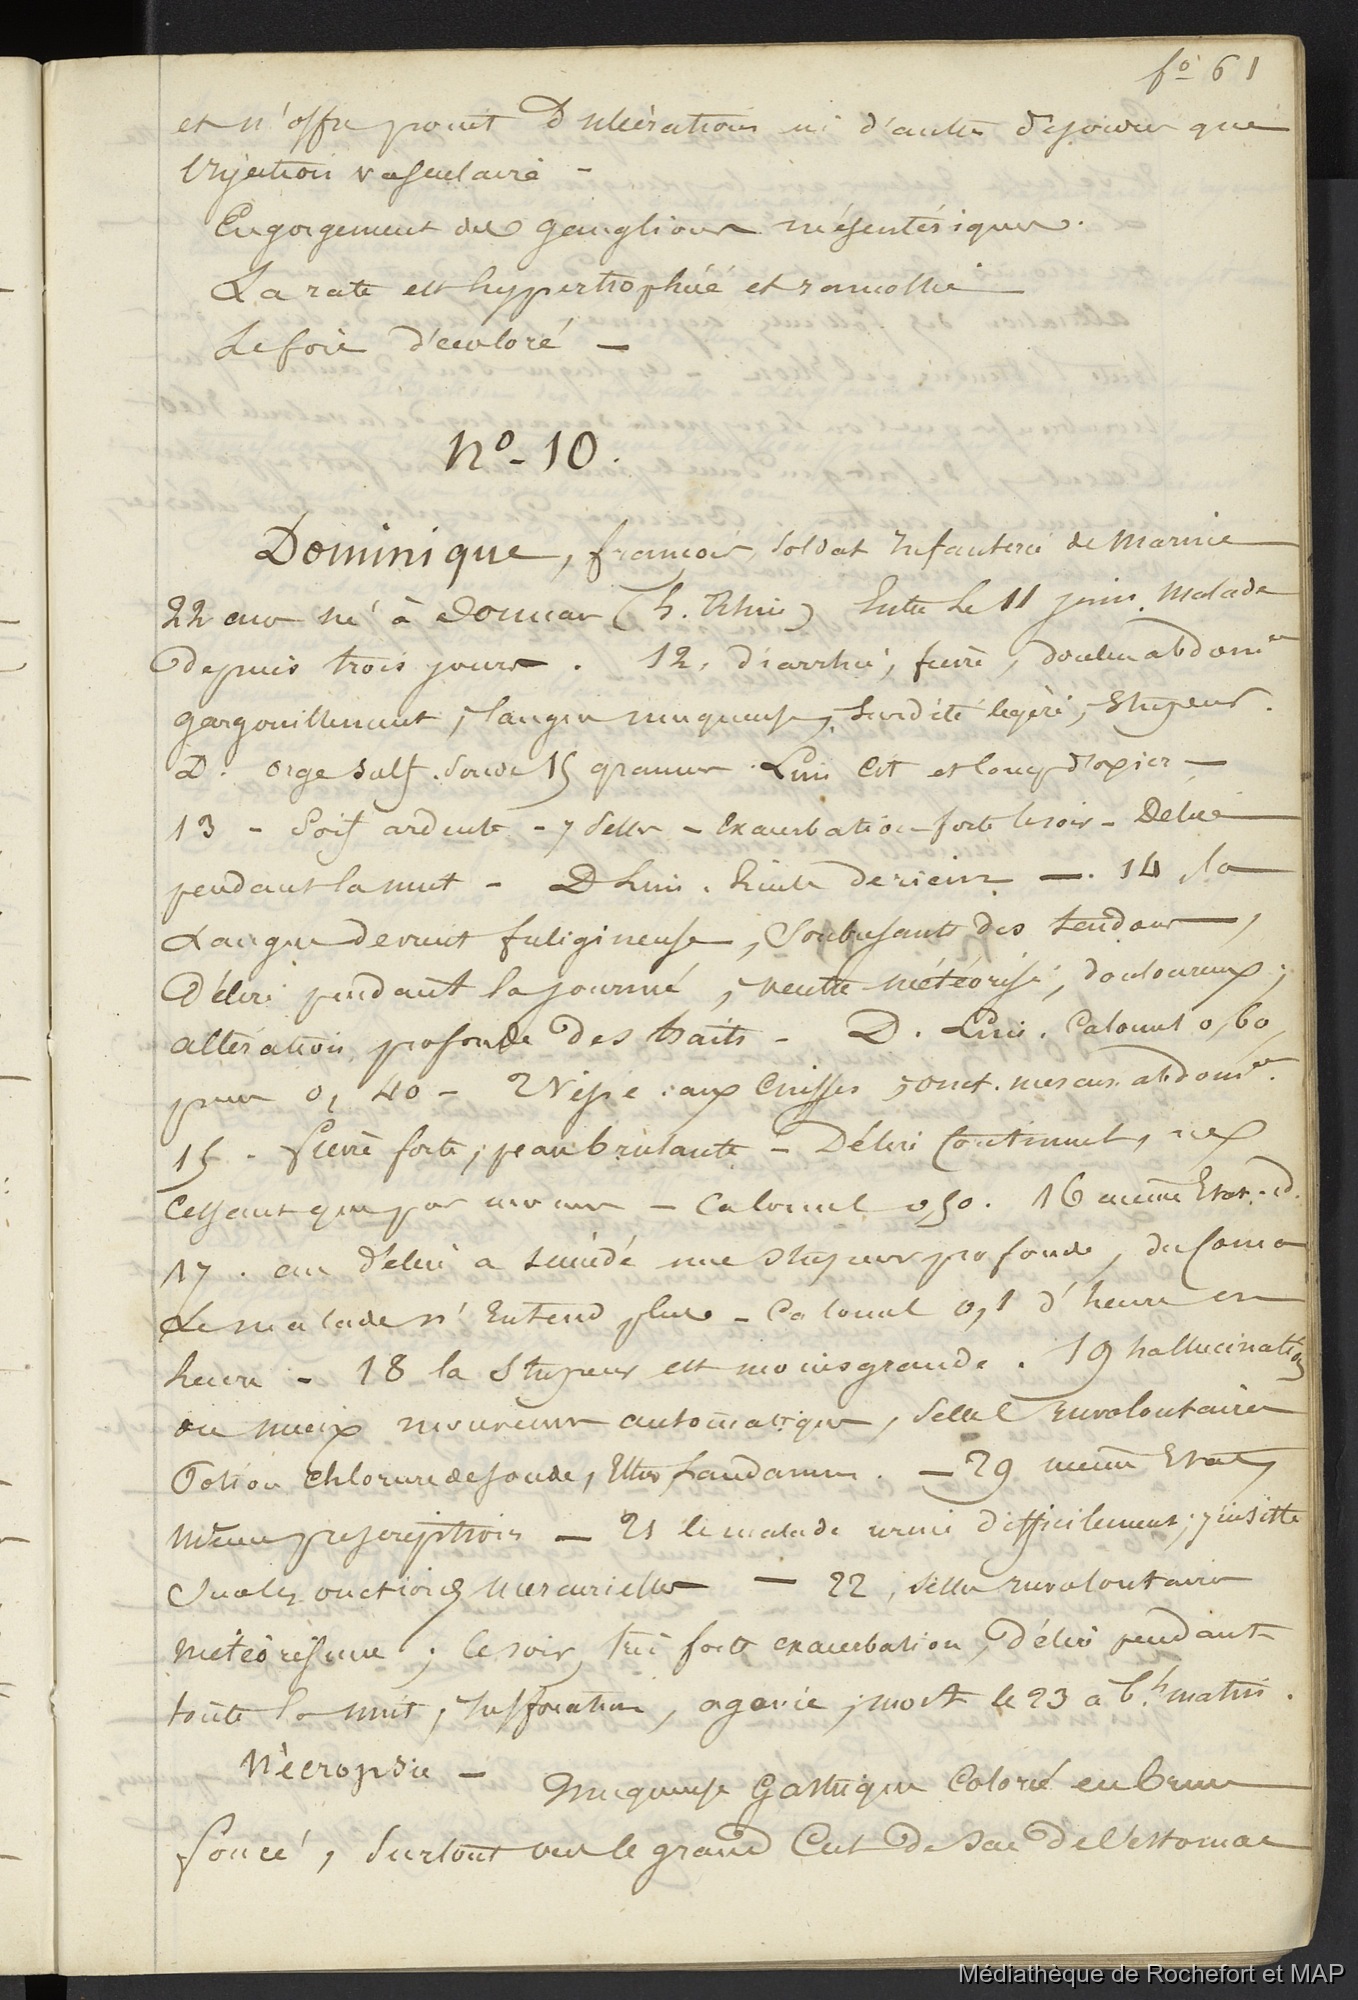 fo 61
et n'offre point D'ulcérations ni d'autre désordre que
l'injection vasculaire -
Engorgement des ganglions mésentériques.
La rate est hypertrophiée et ramollie
Le foie décoloré —
No - 10.
Dominique, françois, soldat Infanterie de Marine
22 ans né à (h. Rhin) Entré le 11 juin, Malade
depuis trois jours. 12, diarrhée, fièvre, douleur abdomle
gargouillement, langue muqueuse, surdité légère, Stupeur.
D. orge Sulf. Soude 15 grammes Lini
13 - Soif ardente - 7 selles - Exacerbation forte le soir - Délire
pendant la nuit - D Lini. huile de ricin —. 14, la
Langue devient fuligineuse, Soubresauts des tendons,
Délire pendant la journée, ventre météorisé, douloureux;
altération profonde des traits - D. Lini. Calomel 0,60
pour 0,40 - Vésic. aux Cuisses, onct. mercur. abdomle.
15 - fièvre forte; peau brulante - Délire Continuel, ne
Cessant que par - Calomel 0,50. 16 même Etat. id.
17. au délire a succédé une stupeur profonde, du Coma
Le malade n'Entend plus - Calomel 0,1 d'heure en
heure - 18 la Stupeur est moins grande. 19 hallucination
ou mieux mouvemens automatiques, selles Envolontaires
Potion Chlorure de soude, Laudanum. — 29 même Etat,
même prescription — 21 le malade urine difficilement; j'insiste
Sur les onctions Mercurielles — 22, selles involontaires
météorisme; le soir, très forte exacerbation, délire pendant
toute la nuit, suffocation, agonie, mort le 23 a 6.h matin.
Nécropsie - Muqueuse Gastrique Colorée en brun
foncé, Surtout vers le grand Cul De Sac De l'estomac
Médiathèque de Rochefort et MAP